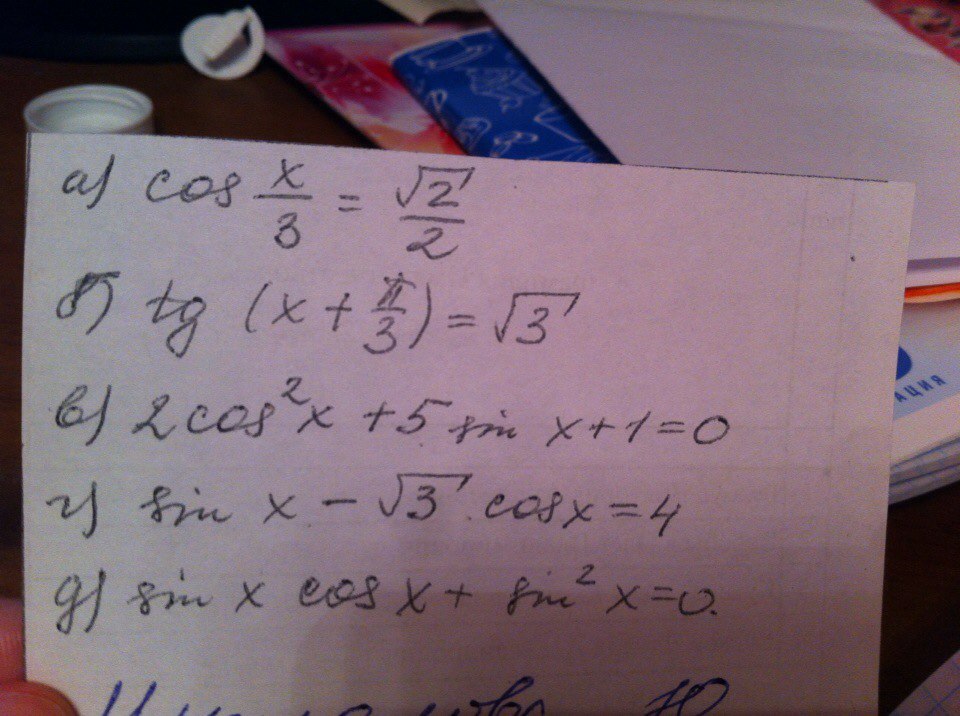 а) cos x/3 = √2/2
б) tg (x + π/3) = √3
в) 2cos²x + 5 sin x + 1 = 0
г) sin x − √3 cos x = 4
д) sin x cos x + sin² x = 0.
АЦИЯ